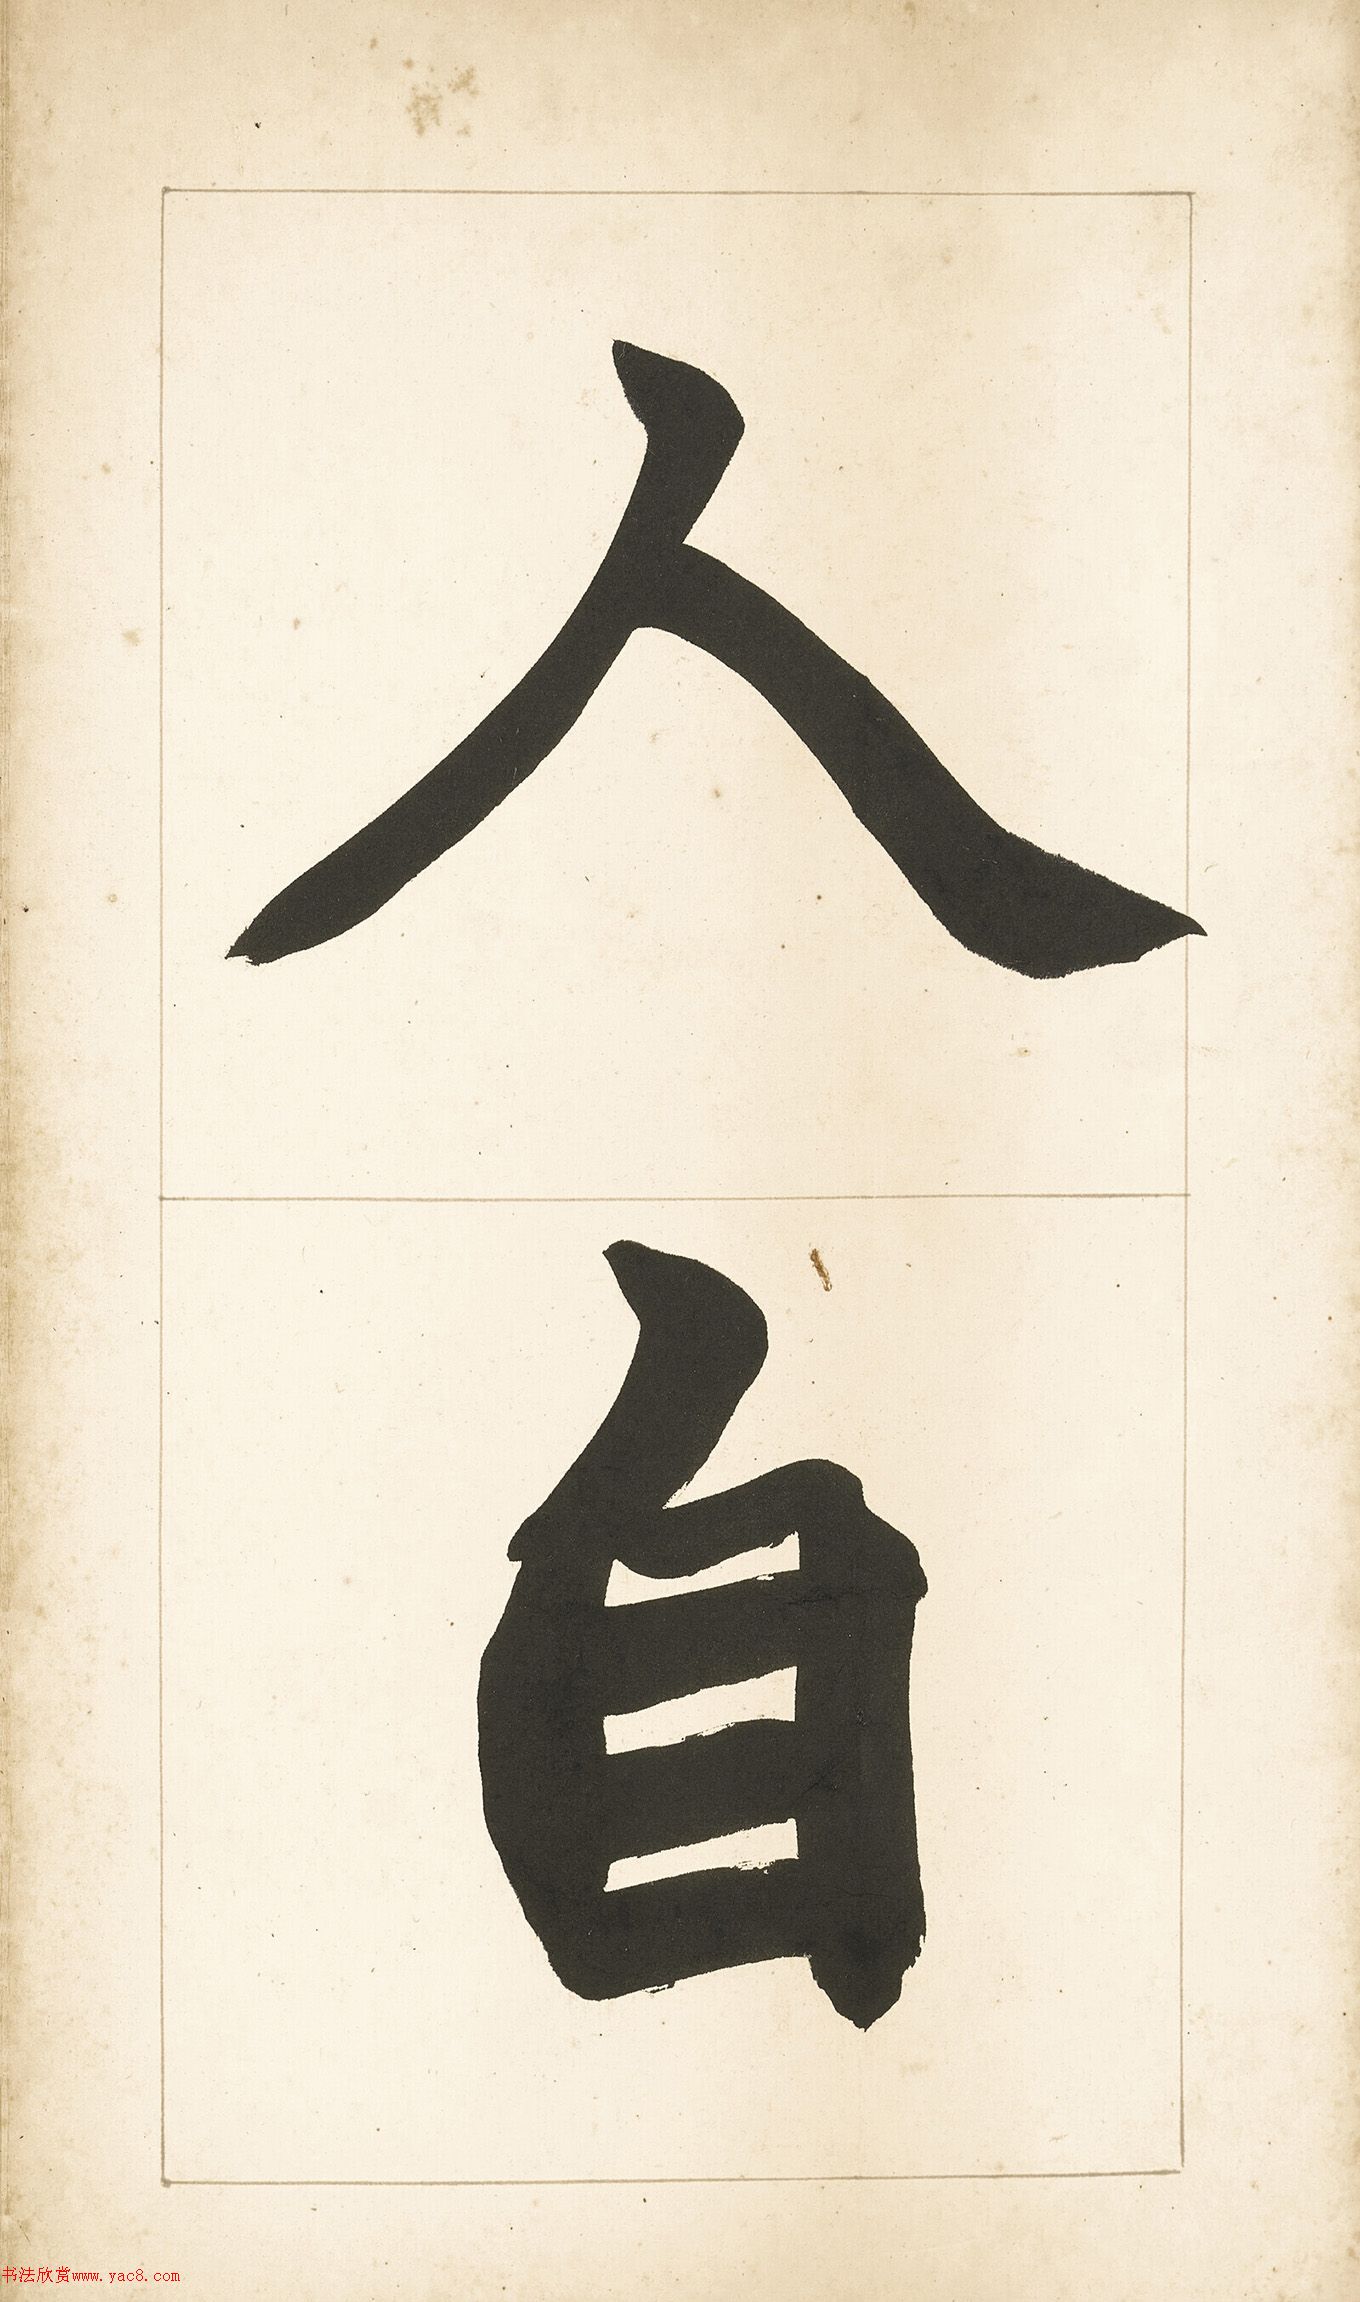 人
自
书法欣赏www.yac8.com